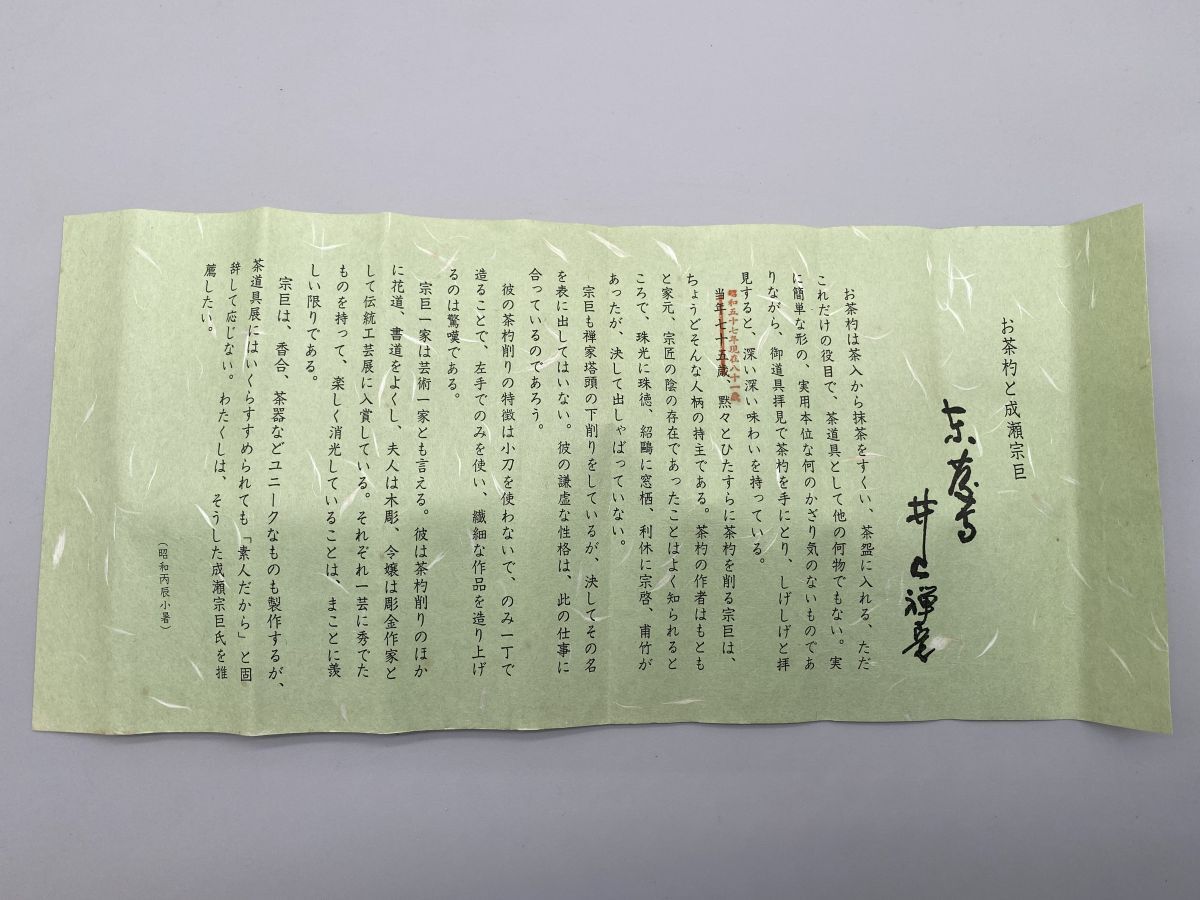 お茶杓と成瀬宗巨
東慶寺
井上禅定
お茶杓は茶入から抹茶をすくい、茶盌に入れる、ただ
これだけの役目で、茶道具として他の何物でもない。実
に簡単な形の、実用本位な何のかざり気のないものであ
りながら、御道具拝見で茶杓を手にとり、しげしげと拝
見すると、深い深い味わいを持っている。
昭和五十七年現在八十一歳
当年七十五歳、黙々とひたすらに茶杓を削る宗巨は、
ちょうどそんな人柄の持主である。茶杓の作者はもとも
と家元、宗匠の陰の存在であったことはよく知られると
ころで、珠光に珠徳、紹鷗に窓栖、利休に宗啓、甫竹が
あったが、決して出しゃばっていない。
宗巨も禅家塔頭の下削りをしているが、決してその名
を表に出してはいない。彼の謙虚な性格は、此の仕事に
合っているのであろう。
彼の茶杓削りの特徴は小刀を使わないで、のみ一丁で
造ることで、左手でのみを使い、繊細な作品を造り上げ
るのは驚嘆である。
宗巨一家は芸術一家とも言える。彼は茶杓削りのほか
に花道、書道をよくし、夫人は木彫、令嬢は彫金作家と
して伝統工芸展に入賞している。それぞれ一芸に秀でた
ものを持って、楽しく消光していることは、まことに羨
しい限りである。
宗巨は、香合、茶器などユニークなものも製作するが、
茶道具展にはいくらすすめられても「素人だから」と固
辞して応じない。わたくしは、そうした成瀬宗巨氏を推
薦したい。
（昭和丙辰小暑）